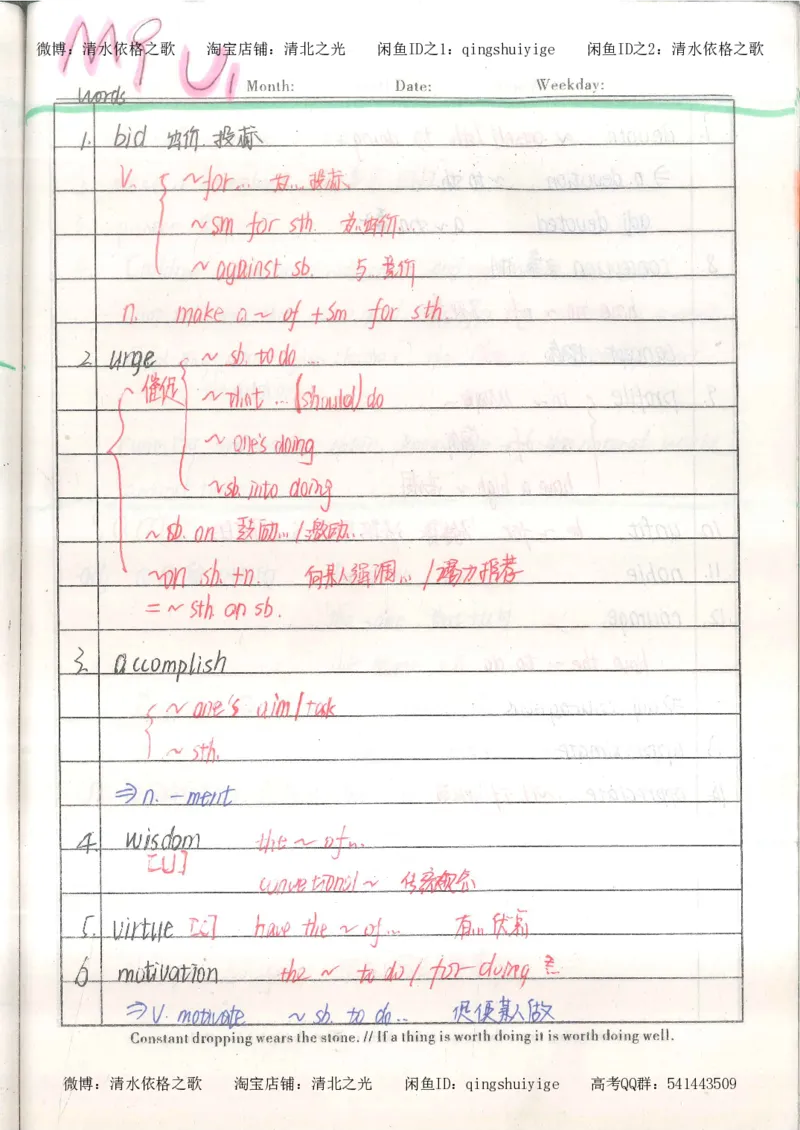 微博：清水依格之歌 淘宝店铺：清北之光 闲鱼ID之1：qingshuiyige 闲鱼ID之2：清水依格之歌
M9 U1
Month: Date: Weekday:
words
1. bid 出价. 投标
v. ~for... 为... 投标
~sm for sth. 为..出价
~against sb. 与 竞价
n. make a ~ of +sm for sth.
2. urge ~ sb. to do ...
~催促 ~that ... (should) do
~ one's doing
~sb. into doing
~ sb. on 鼓励.../激励...
~on sb. +n. 向某人强调... /竭力推荐
= ~ sth. on sb.
3. accomplish
~ one's aim/task
~ sth.
⇒ n. -ment
4. wisdom the ~ of n.
[U] conventional ~ 传统观念
5. virtue [C] have the ~ of ... 有...优点
6 motivation the ~ to do / for doing
⇒ v. motivate ~ sb. to do .. 促使某人做
Constant dropping wears the stone. // If a thing is worth doing it is worth doing well.
微博：清水依格之歌 淘宝店铺：清北之光 闲鱼ID：qingshuiyige 高考QQ群：541443509